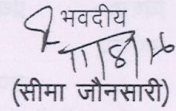 भवदीय
11/8/16
(सीमा जौनसारी)